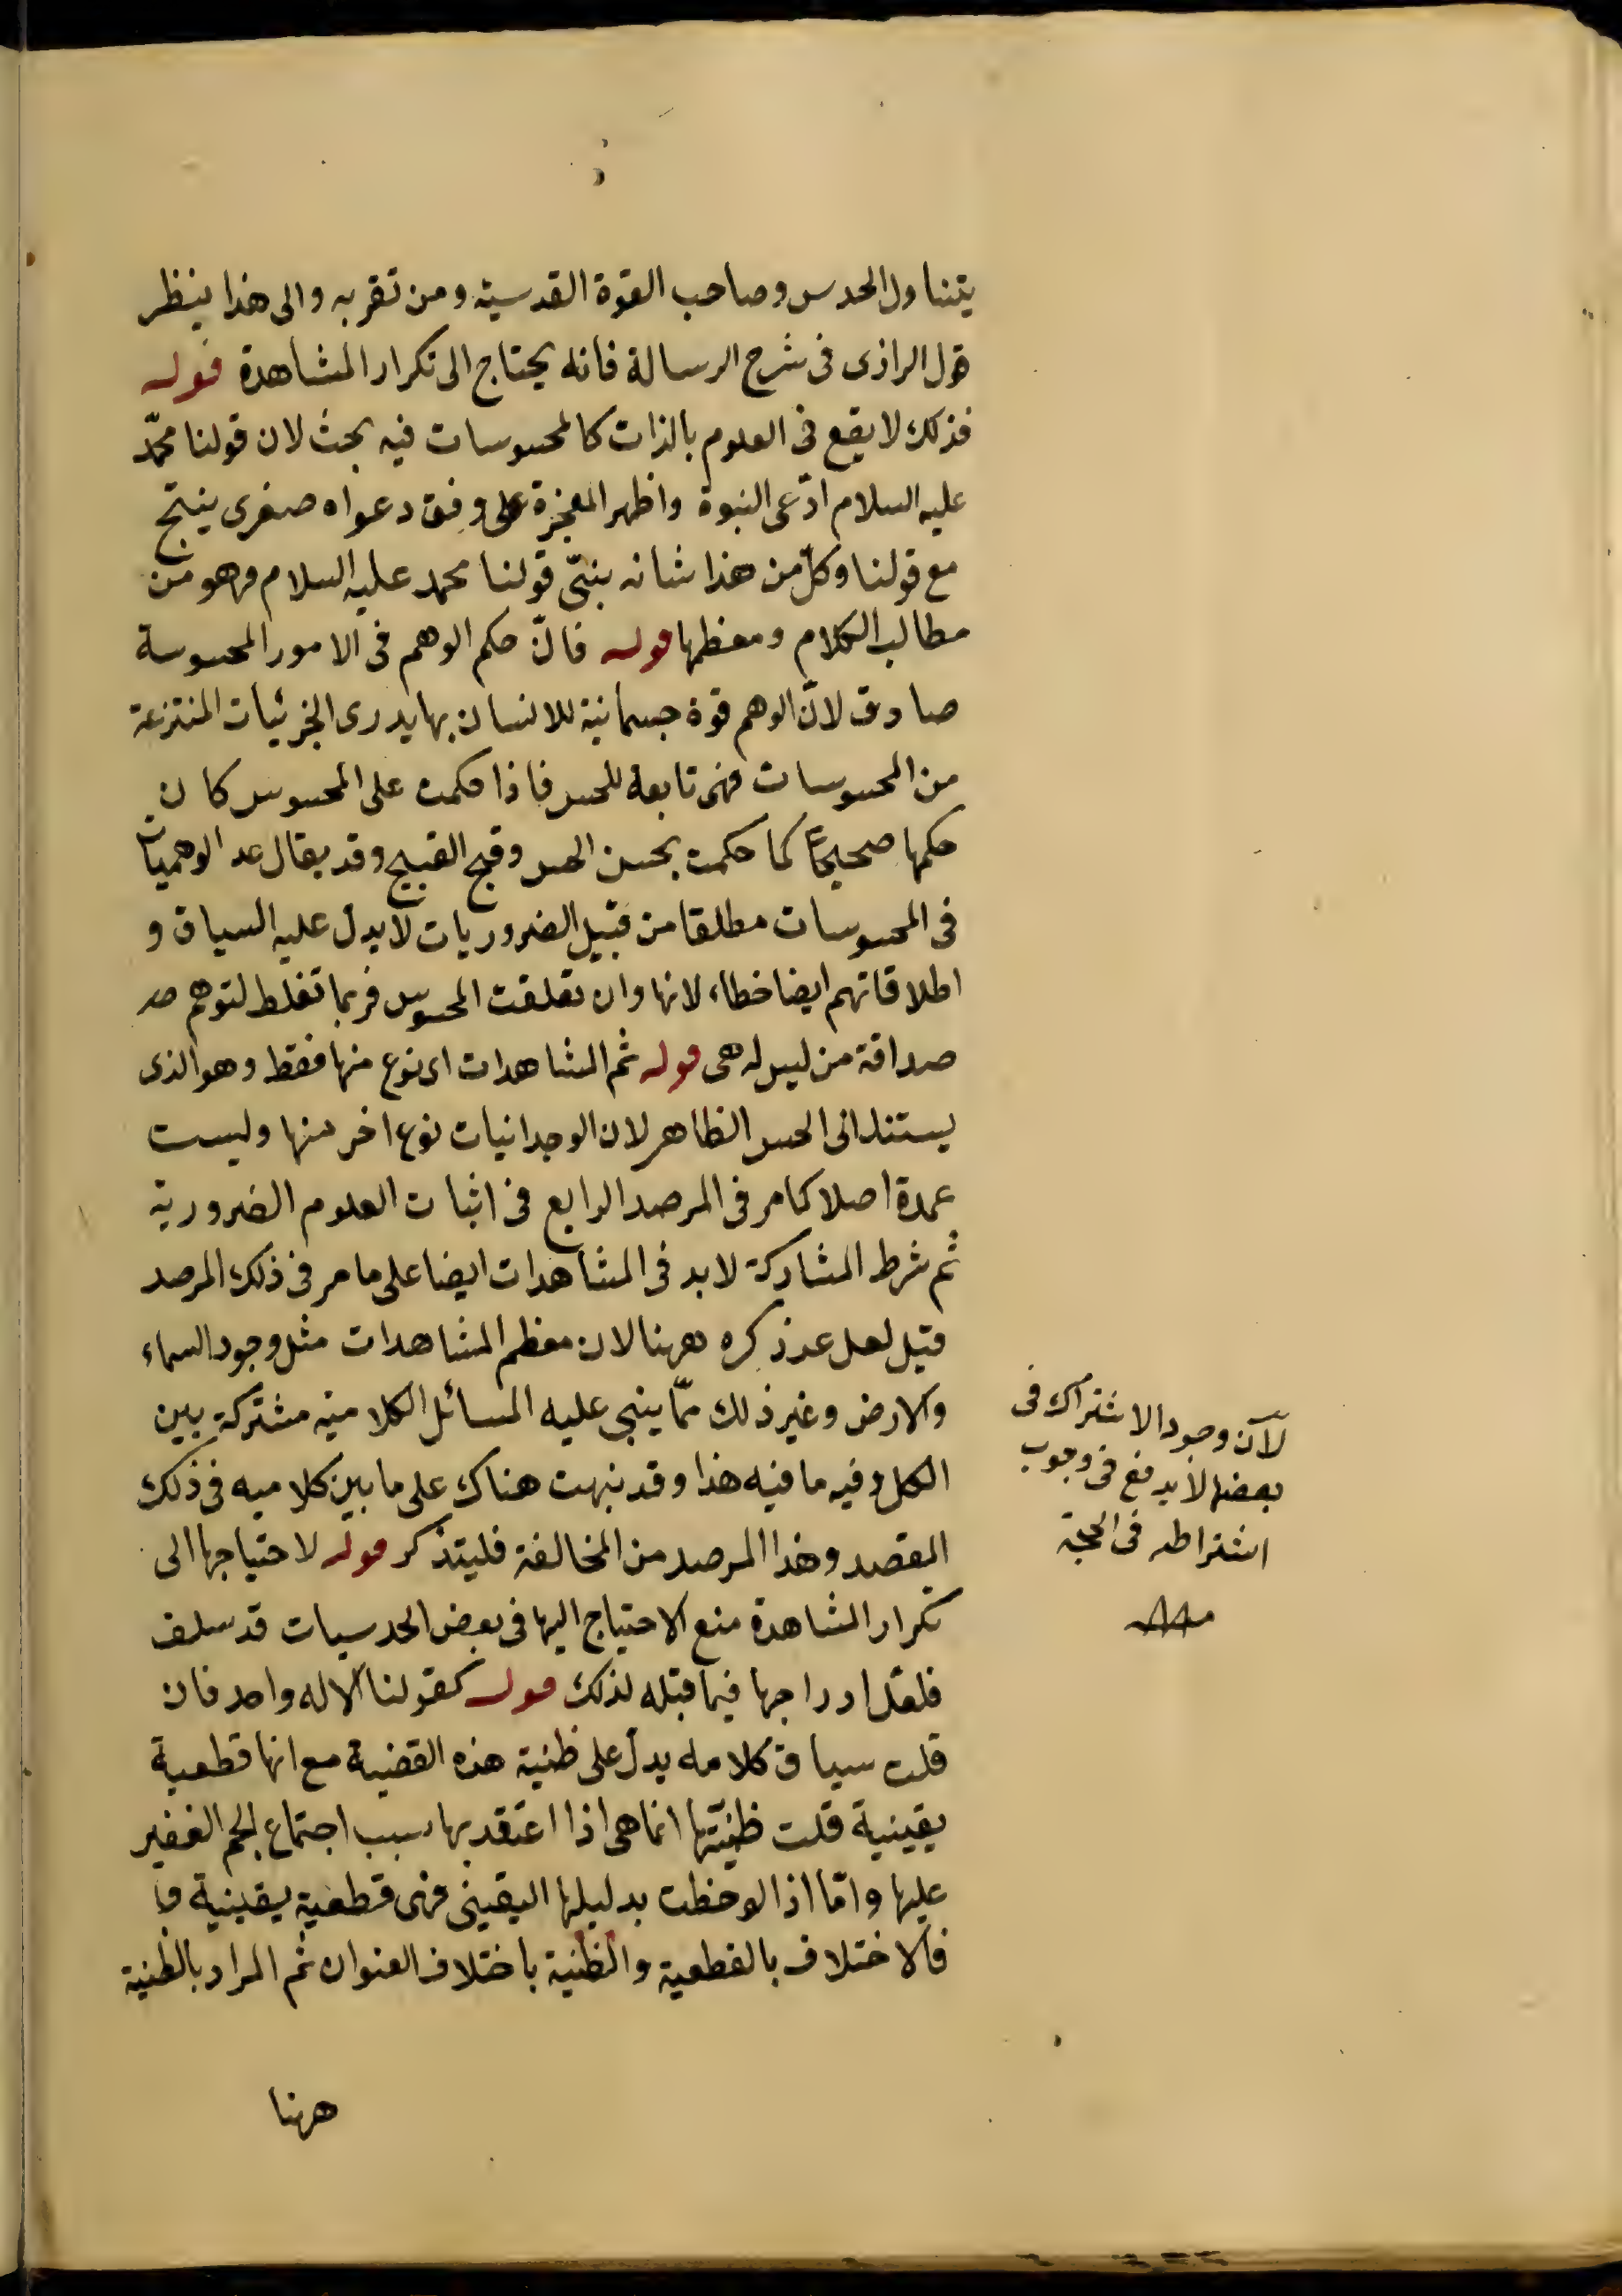 يتناول الحدس وصاحب القوة القدسية ومن تقربه والى هذا ينظر
قول الرازى فى شرح الرسالة فانه يحتاج الى تكرار المشاهدة قوله
فذلك لا يقع فى العلوم بالذات كالمحسوسات فيه بحث لان قولنا محمّد
عليه السلام ادّعى النبوة واظهر المعجزة على وفق دعواه صغرى ينتج
مع قولنا وكل من هذا شانه بنبىّ قولنا محمد عليه السلام وهو من
مطالب الكلام ومعظمها قوله فانّ حكم الوهم فى الامور المحسوسة
صادق لانّ الوهم قوة جسمانية للانسان بها يدرى الجزئيات المنتزعة
من المحسوسات فهى تابعة للحس فاذا حكمت على المحسوس كان
حكمها صحيحًا كما حكمت بحسن الحسن وقبح القبيح وقد يقال عد الوهميات
فى المحسوسات مطلقا من قبيل الضروريات لا يدل عليه السياق و
اطلاقاتهم ايضا خطاء لانها وان تعلقت المحسوس فربما تغلط لتوهم صد
صداقة من ليس له هى قوله ثم المشاهدات اى نوع منها فقط وهو الذى
يستند الى الحس الظاهر لان الوجدانيات نوع اخر منها وليست
عمدة اصلا كما مر فى المرصد الرابع فى اثبات العلوم الضرورية
ثم شرط المشاركة لا بد فى المشاهدات ايضا على ما مر فى ذلك المرصد
قيل لعل عدم ذكره ههنا لان معظم المشاهدات مثل وجود السماء
والارض وغير ذلك ممّا يبنى عليه المسائل الكلامية مشتركة بين
الكل وفيه ما فيه هذا وقد نبهت هناك على ما بين كلاميه فى ذلك
المقصد وهذا المرصد من المخالفة فليتذكر قوله لاحتياجها الى
تكرار المشاهدة منع الاحتياج اليها فى بعض الحدسيات قد سلف
فلعل ادراجها فيما قبله لذلك قوله كقولنا الاله واحد فان
قلت سياق كلامه يدل على ظنية هذه القضية مع انها قطعية
يقينية قلت ظنيّتها انما هى اذا اعتقد بها بسبب اجتماع الجم الغفير
عليها وامّا اذا لوحظت بدليلها اليقينى فهى قطعية يقينية فا
فالاختلاف بالقطعية والظنية باختلاف العنوان ثم المراد بالظنية
ههنا
لان وجود الاشتراك فى
بعضها لا يدفع فى وجوب
اشتراطه فى الحجة